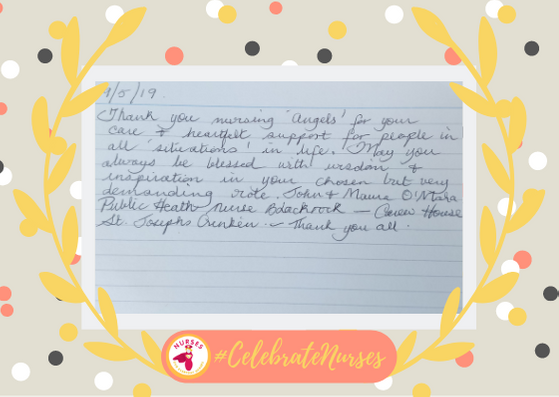 /5/19.
Thank you nursing 'Angels' for your
care & heartfelt support for people in
all 'situations' in life. May you
always be blessed with wisdom &
inspiration in your chosen but very
demanding role. John & Maura O'Mara
Public Heath Nurse Blackrock — House
St. Josephs — Thank you all.
NURSES
#CelebrateNurses